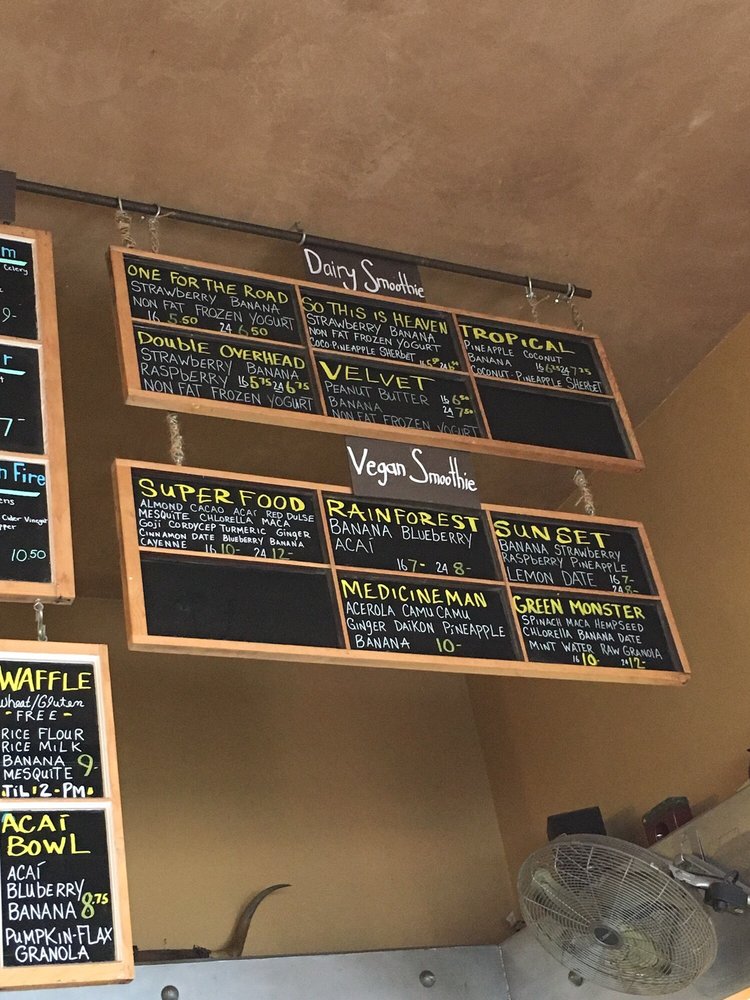 m
Celery
9-
r
7-
n Fire
ens
Cider Vinegar
pper
10.50
WAFFLE
Wheat/Gluten
- FREE -
RICE FLOUR
RICE MILK
BANANA
MESQUITE 9-
TIL 2 - PM
ACAÍ
BOWL
ACAÍ
BLUBERRY
BANANA 8.75
PUMPKIN-FLAX
GRANOLA
Dairy Smoothie
ONE FOR THE ROAD
STRAWBERRY BANANA
NON FAT FROZEN YOGURT
16 5.50 24 6.50
SO THIS IS HEAVEN
STRAWBERRY BANANA
NON FAT FROZEN YOGURT
COCO PINEAPPLE SHERBET
TROPICAL
PINEAPPLE COCONUT
BANANA 16 6.25 24 7.25
COCONUT-PINEAPPLE SHERBET
DOUBLE OVERHEAD
STRAWBERRY BANANA
RASPBERRY 16 5.75 24 6.75
NON FAT FROZEN YOGURT
VELVET
PEANUT BUTTER 16 6.50
BANANA 24 7.50
NON FAT FROZEN YOGURT
Vegan Smoothie
SUPER FOOD
ALMOND CACAO ACAÍ RED DULSE
MESQUITE CHLORELLA MACA
GOJI CORDYCEP TURMERIC GINGER
CINNAMON DATE BLUEBERRY BANANA
CAYENNE 16 10- 24 12-
RAINFOREST
BANANA BLUEBERRY
ACAÍ
16 7- 24 8-
SUNSET
BANANA STRAWBERRY
RASPBERRY PINEAPPLE
LEMON DATE 16 7-
24 8-
MEDICINEMAN
ACEROLA CAMU CAMU
GINGER DAIKON PINEAPPLE
BANANA 10-
GREEN MONSTER
SPINACH MACA HEMPSEED
CHLORELLA BANANA DATE
MINT WATER RAW GRANOLA
16 10- 24 12-